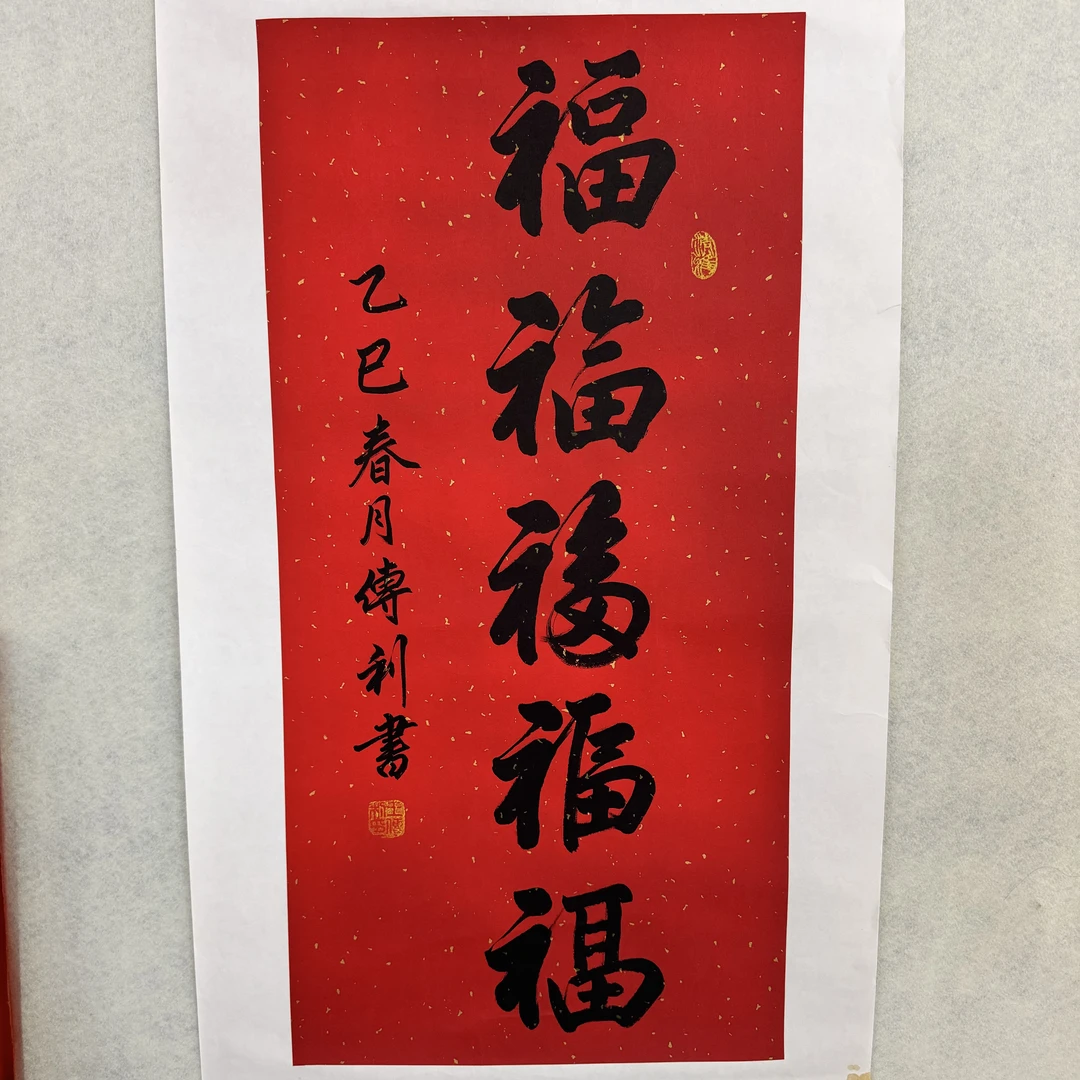 福福福福福
乙巳春月傳利書